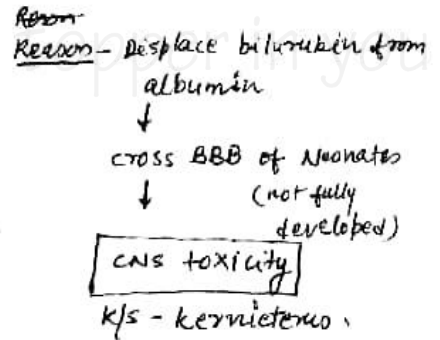 Reason
Reason - Displace bilurubin from
albumin
↓
cross BBB of Neonates
↓ (not fully
developed)
CNS toxicity
k/s - kernicterus.